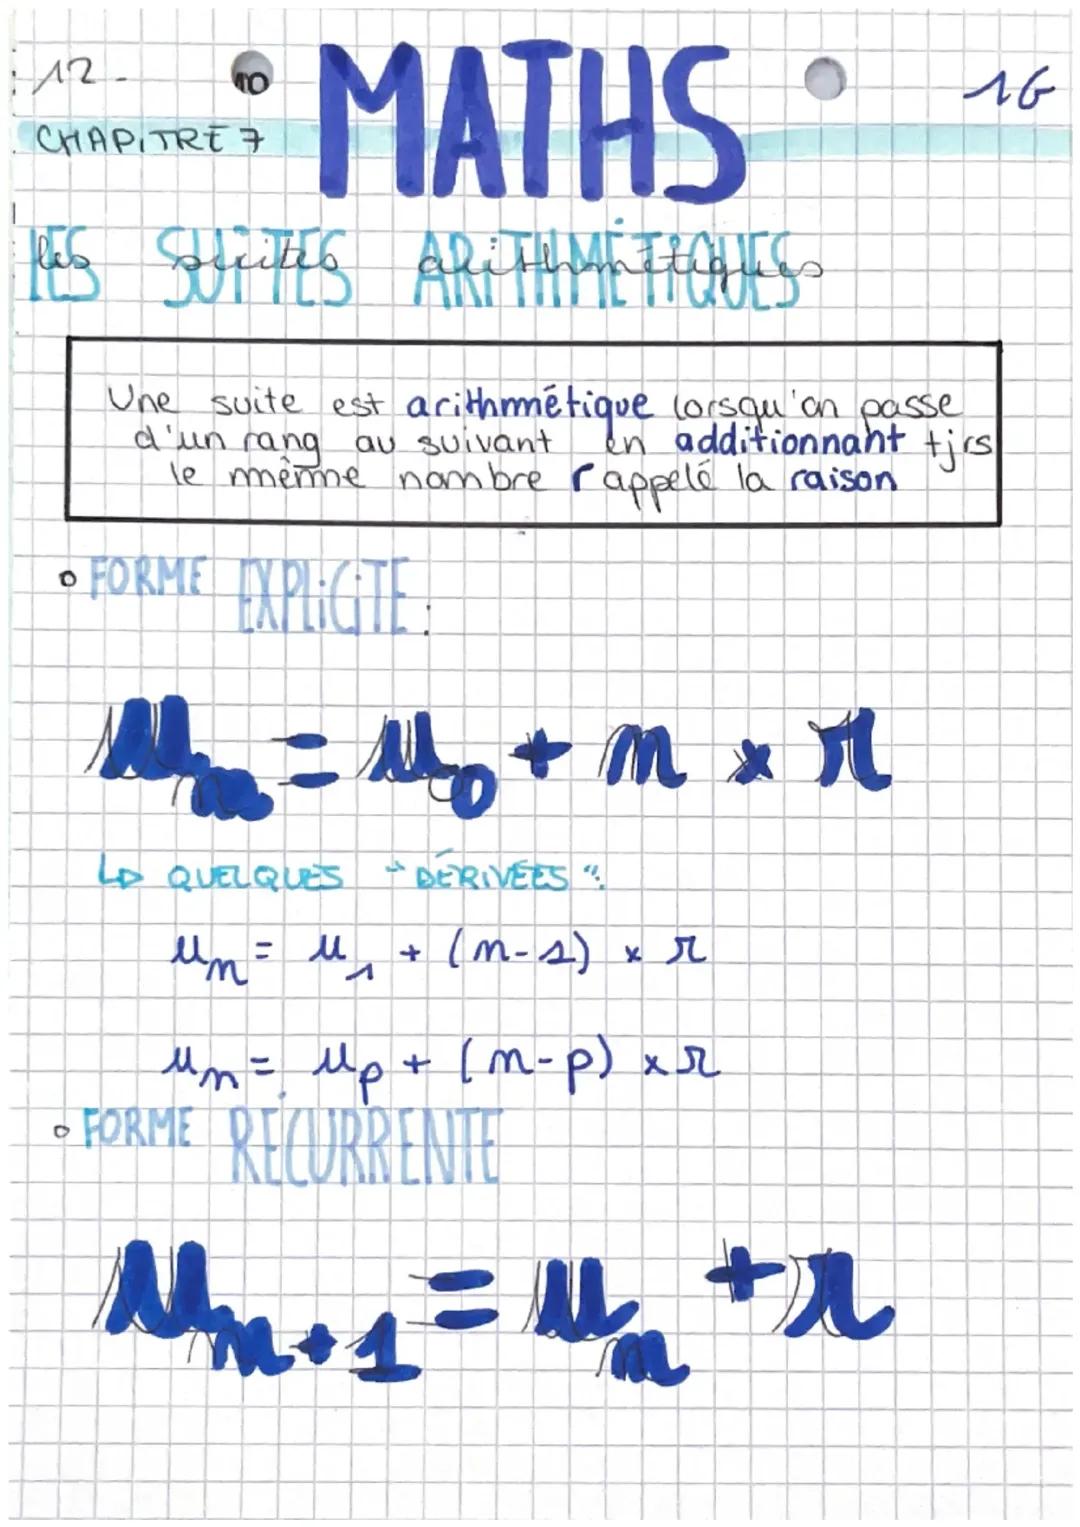 12 - 10 MATHS 1G
CHAPITRE 7
les SUITES ARITHMÉTIQUES
Une suite est arithmétique lorsqu'on passe
d'un rang au suivant en additionnant tjrs
le même nombre r appelé la raison
° FORME EXPLICITE :
Un = U0 + n × r
↳ QUELQUES "DÉRIVÉES":
Un = U1 + (n-1) × r
Un = Up + (n-p) × r
° FORME RÉCURRENTE
Un+1 = Un + r